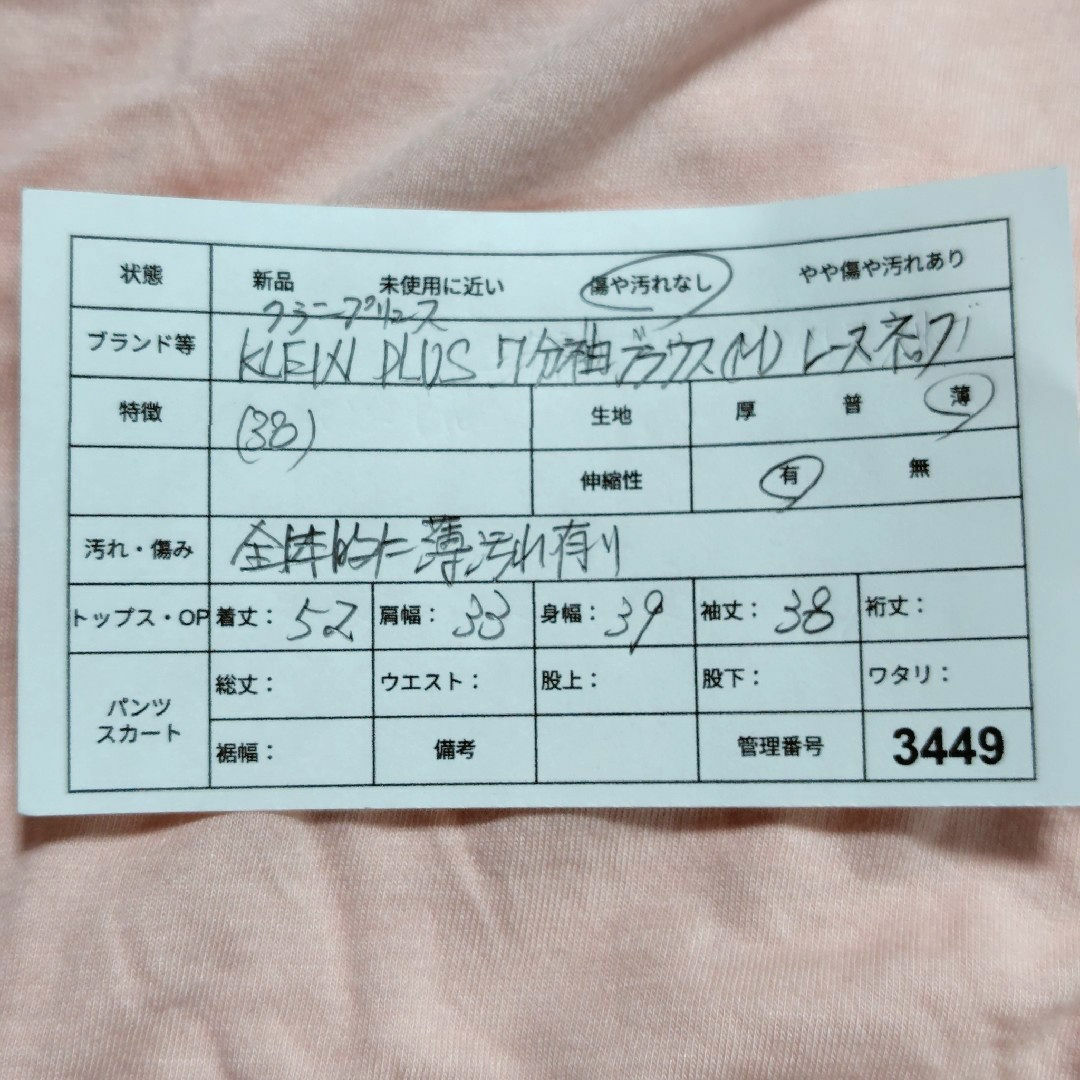 状態 新品 未使用に近い 傷や汚れなし やや傷や汚れあり
ブランド等 KLEIN PLUS 7分袖ブラウス(M) レースネック
特徴 (38) 生地 厚 普 薄
伸縮性 有 無
汚れ・傷み 全体的に薄汚れ有り
トップス・OP 着丈： 52 肩幅： 33 身幅： 39 袖丈： 38 裄丈：
パンツ スカート 総丈： ウエスト： 股上： 股下： ワタリ：
裾幅： 備考 管理番号 3449